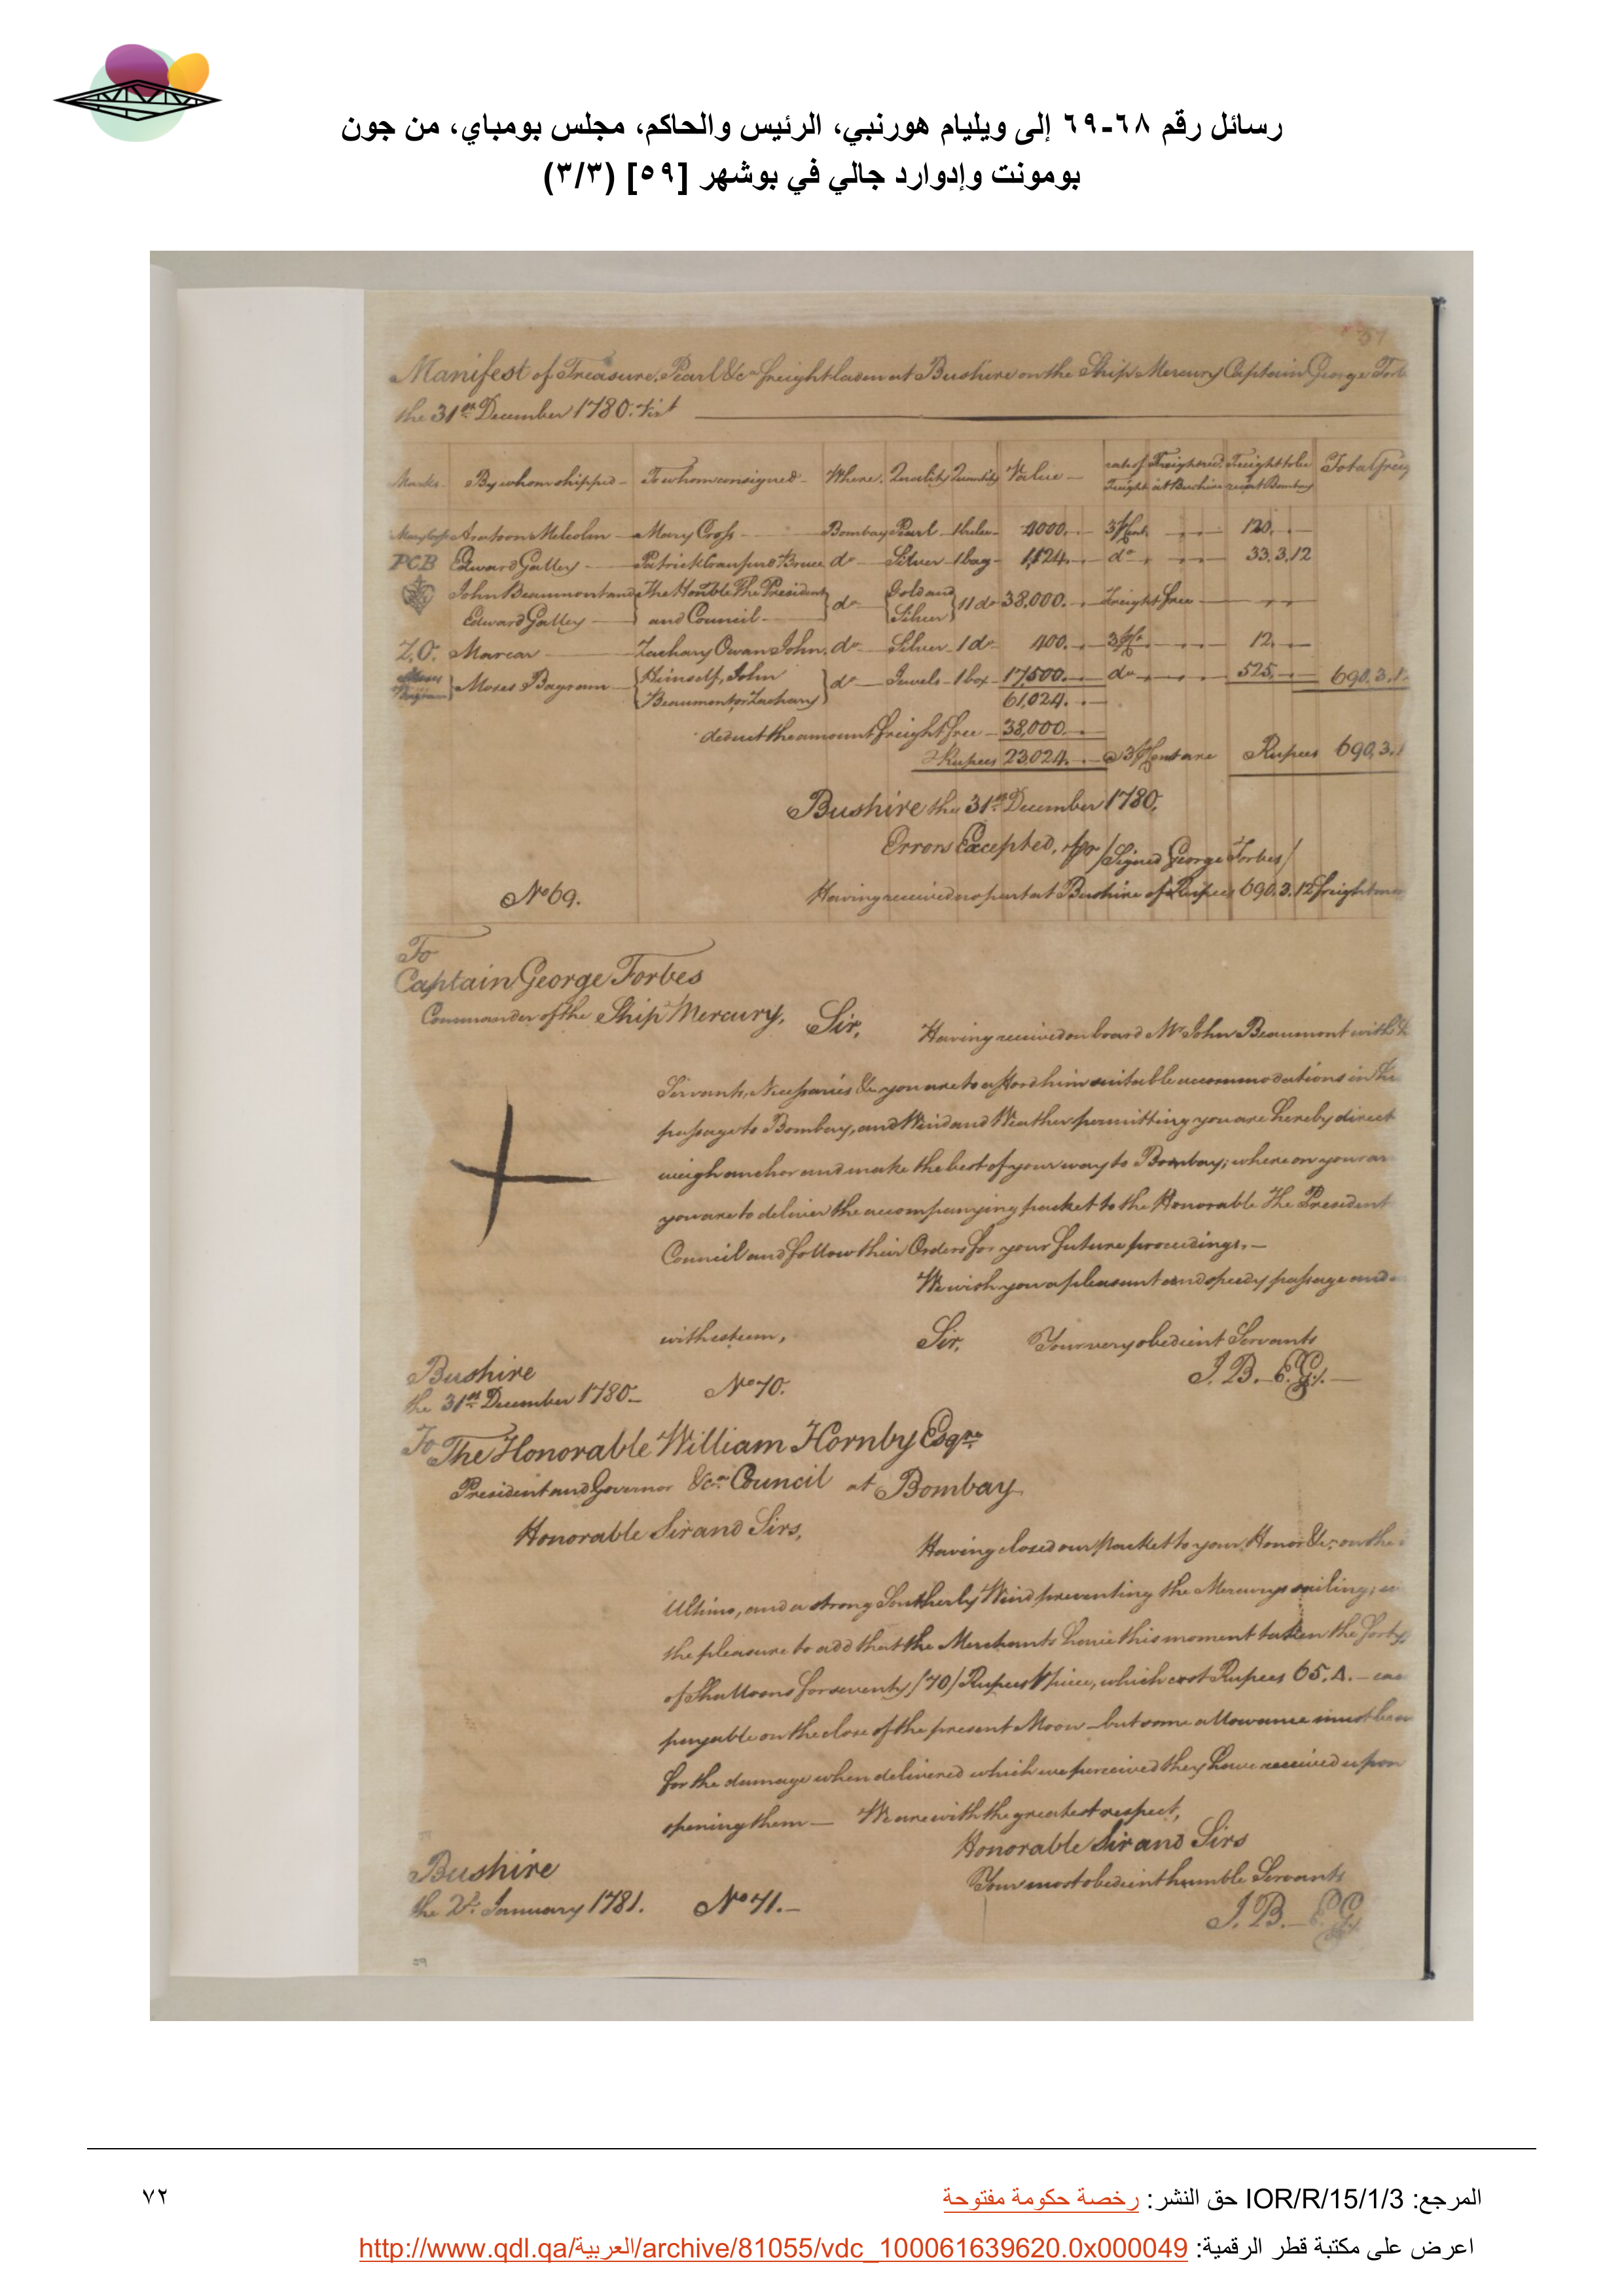 رسائل رقم ٦٨-٦٩ إلى ويليام هورنبي، الرئيس والحاكم، مجلس بومباي، من جون
بومونت وإدوارد جالي في بوشهر [٥٩] (٣/٣)
Manifest of Treasure, Pearl &ca freight laden at Bushire on the Ship Mercury Captain George Forb
the 31st December 1780. Vizt
Marks By whom shipped To whom consigned Where Quality Quantity Value rate of Freight Freight recd. at Bushire Freight to be recd at Bombay Total freig
Mary Cross Aratoon Melcolm Mary Cross Bombay Pearl 4000 3 ⅌ Cent 120
PCB Edward Galley Patrick Cranfurd Bruce do Silver 1 bag 1,624 do 33.3.12
John Beaumont and Edward Galley The Honble The President and Council do Gold and Silver 11 do 38,000 Freight free
Z.O. Marcar Zachary Owan John do Silver 1 do 400 3 ⅌ 12
Moses Bagram Moses Bagram Himself, John Beaumont or Zachary do Jewels 1 box 17,500 do 525 690.3.1
61,024
deduct the amount freight free 38,000
Rupees 23,024 @ 3 ⅌ Cent are Rupees 690.3.1
Bushire the 31st December 1780.
Errors Excepted, /Signed George Forbes/
No 69. Having received no part at Bushire of Rupees 690.3.12 freight
To
Captain George Forbes
Commander of the Ship Mercury,
Sir,
Having received on board Mr John Beaumont with
Servants, Necessaries &ca you are to afford him suitable accommodations in
passage to Bombay, and Wind and Weather permitting you are hereby direct
weigh anchor and make the best of your way to Bombay; where on your ar
you are to deliver the accompanying packet to the Honorable The President
Council and follow their Orders for your future proceedings.—
We wish you a pleasant and speedy passage and
with esteem,
Sir,
Your very obedient Servants
J. B. E. G.
Bushire
the 31st December 1780.
No 70.
To The Honorable William Hornby Esqre
President and Governor &ca Council at Bombay
Honorable Sir and Sirs,
Having closed our Packet to your Honor &ca on the
Ultimo, and a strong Southerly Wind preventing the Mercurys sailing;
the pleasure to add that the Merchants have this moment taken the forty
of Shalloons for seventy /70/ Rupees ⅌ piece, which cost Rupees 65.4.—
payable on the close of the present Moon—but some allowance must be
for the damage when delivered which we perceived they have received upon
opening them— We are with the greatest respect,
Honorable Sir and Sirs
Your most obedient humble Servants
J. B. E. G.
Bushire
the 2d. January 1781.
No 71.—
المرجع: IOR/R/15/1/3 حق النشر: رخصة حكومة مفتوحة
٧٢
اعرض على مكتبة قطر الرقمية: http://www.qdl.qa/العربية/archive/81055/vdc_100061639620.0x000049